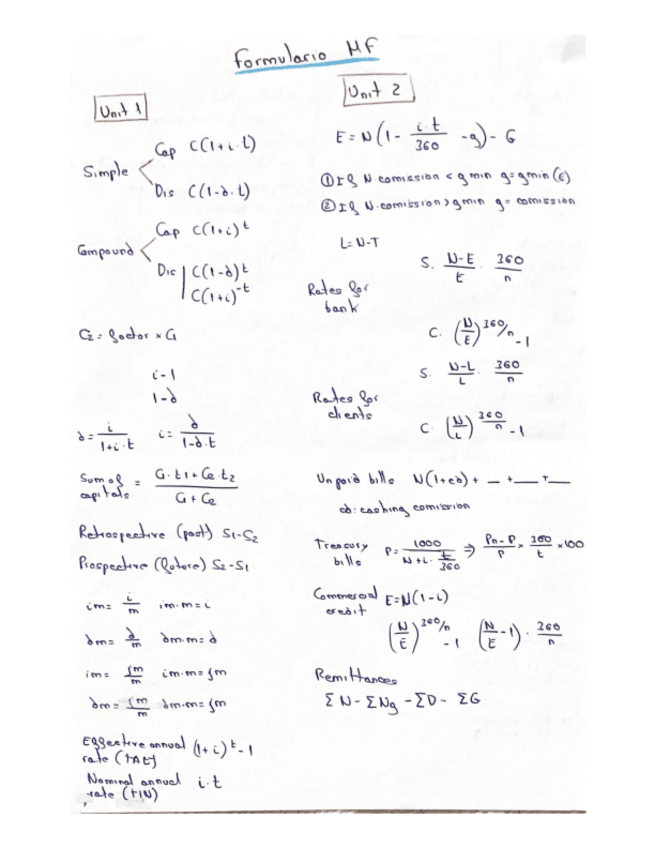 Formulario MF
Unit 1
Simple
Cap C(1+i.t)
Dis C(1-d.t)
Compound
Cap C(1+i)^t
Dis C(1-d)^t
C(1+i)^-t
C2 = factor × C1
i-1
1-d
d = i / 1+i.t    i = d / 1-d.t
Sum of capitals = C1.t1 + C2.t2 / C1 + C2
Retrospective (past) S1-S2
Prospective (future) S2-S1
im = i/m    im.m = i
dm = d/m    dm.m = d
im = jm/m    im.m = jm
dm = jm/m    dm.m = jm
Effective annual (1+i)^t - 1
rate (TAE)
Nominal annual i.t
rate (TIN)
Unit 2
E = N(1 - i.t/360 - g) - G
① If N.comission < g min g = gmin (€)
② If N.comission > gmin g = comission
L = N-T
Rates for bank
S. N-E/E . 360/n
C. (N/E)^360/n - 1
Rates for clients
S. N-L/L . 360/n
C. (N/L)^360/n - 1
Unpaid bills N(1+cd) + _ + _ + _
cd: cashing comission
Treasury bills P = 1000 / N+i. t/360 ⇒ Pn-P/P × 360/t × 100
Commercial credit E = N(1-i)
(N/E)^360/n - 1    (N/E - 1) . 360/n
Remittances
Σ N - Σ Ng - Σ D - Σ G